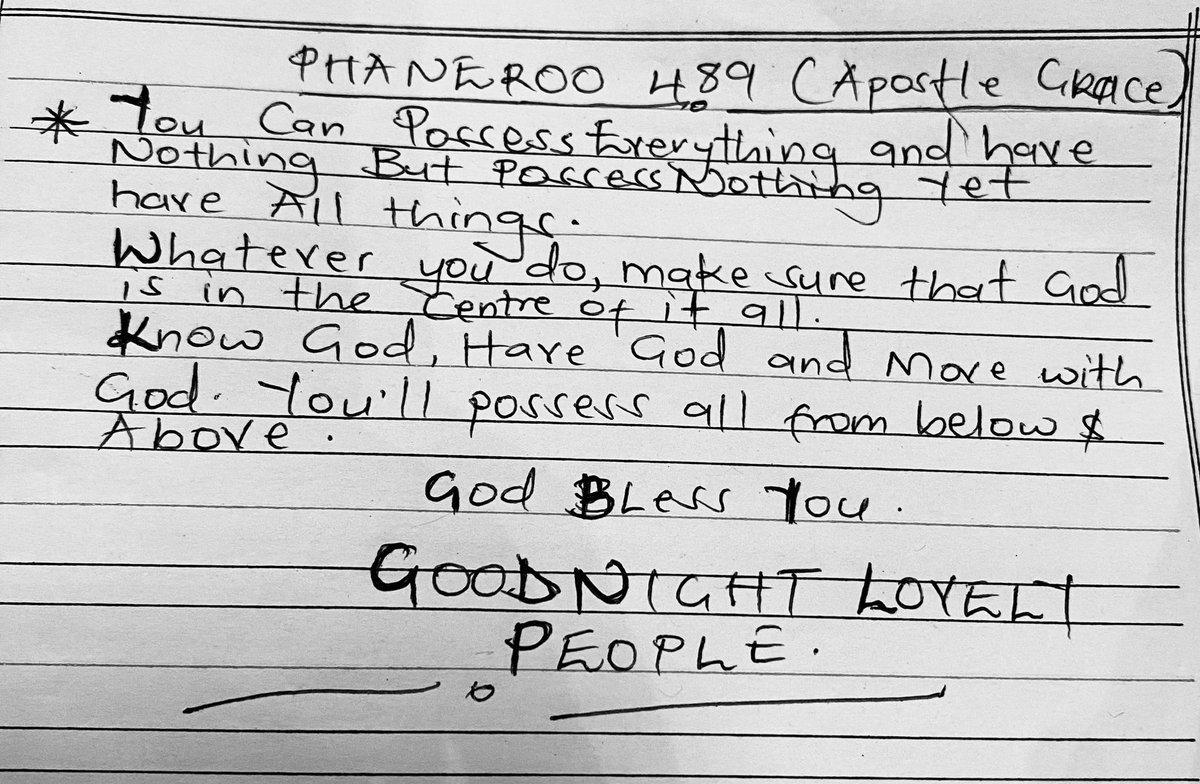 PHANEROO 489 (Apostle Grace)
* You Can Possess Everything and have
Nothing But Possess Nothing Yet
have All things.
Whatever you do, make sure that God
is in the Centre of it all.
Know God, Have God and Move with
God. You'll possess all from below &
Above.
God BLess You.
GOODNIGHT LOVELY
PEOPLE.